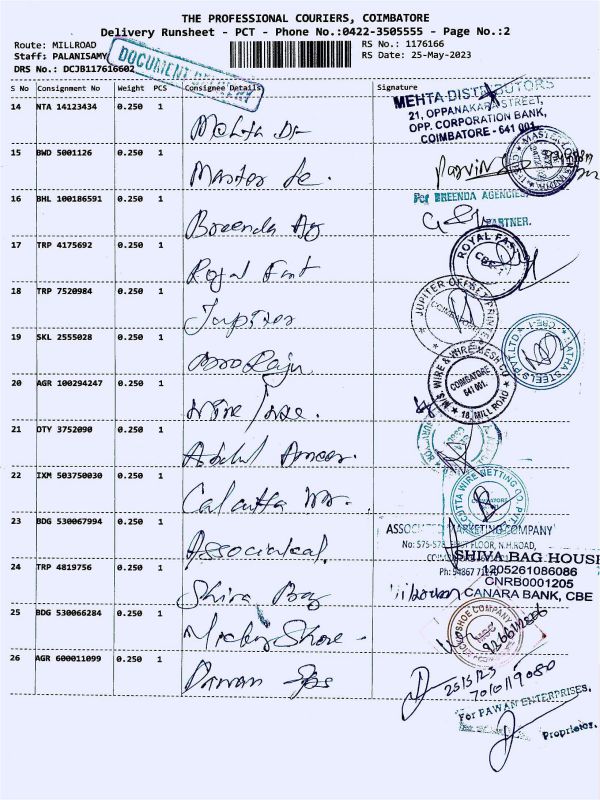 THE PROFESSIONAL COURIERS, COIMBATORE
Delivery Runsheet - PCT - Phone No.:0422-3505555 - Page No.:2
Route: MILLROAD RS No.: 1176166
Staff: PALANISAMY RS Date: 25-May-2023
DRS No.: DCJB117616602
DOCUMENT
S No Consignment No Weight PCS Consignee Details Signature
14 NTA 14123434 0.250 1
Mehta Dr
MEHTA DISTRIBUTORS
21, OPPANAKARA STREET,
OPP. CORPORATION BANK,
COIMBATORE - 641 001.
15 BWD 5001126 0.250 1
Master
16 BHL 100186591 0.250 1
Breenda Ag
For BREENDA AGENCIES,
PARTNER.
17 TRP 4175692 0.250 1
Royal Fast
ROYAL FAST
CBE-1
18 TRP 7520984 0.250 1
Jupiter
JUPITER OFFSET PRINTERS
19 SKL 2555028 0.250 1
Raju
MATHA STEELS PVT.LTD. CBE-1
20 AGR 100294247 0.250 1
Wire
M/S. WIRE & WIRE MESH CO
COIMBATORE
641 001.
18, MILL ROAD
21 DTY 3752090 0.250 1
Abdul Ameer
22 IXM 503750030 0.250 1
Calcutta Wr.
CALCUTTA WIRE NETTING CO. PVT.
23 BDG 530067994 0.250 1
Associated
ASSOCIATED MARKETING COMPANY
FLOOR, N.H.ROAD,
24 TRP 4819756 0.250 1
Shiva Bag
SHIVA BAG HOUSE
1205261086086
CNRB0001205
CANARA BANK, CBE
25 BDG 530066284 0.250 1
Micky Shoe
SHOE COMPANY
26 AGR 600011099 0.250 1
Pawan
25/5/23
7010119080
For PAWAN ENTERPRISES,
Proprietor.